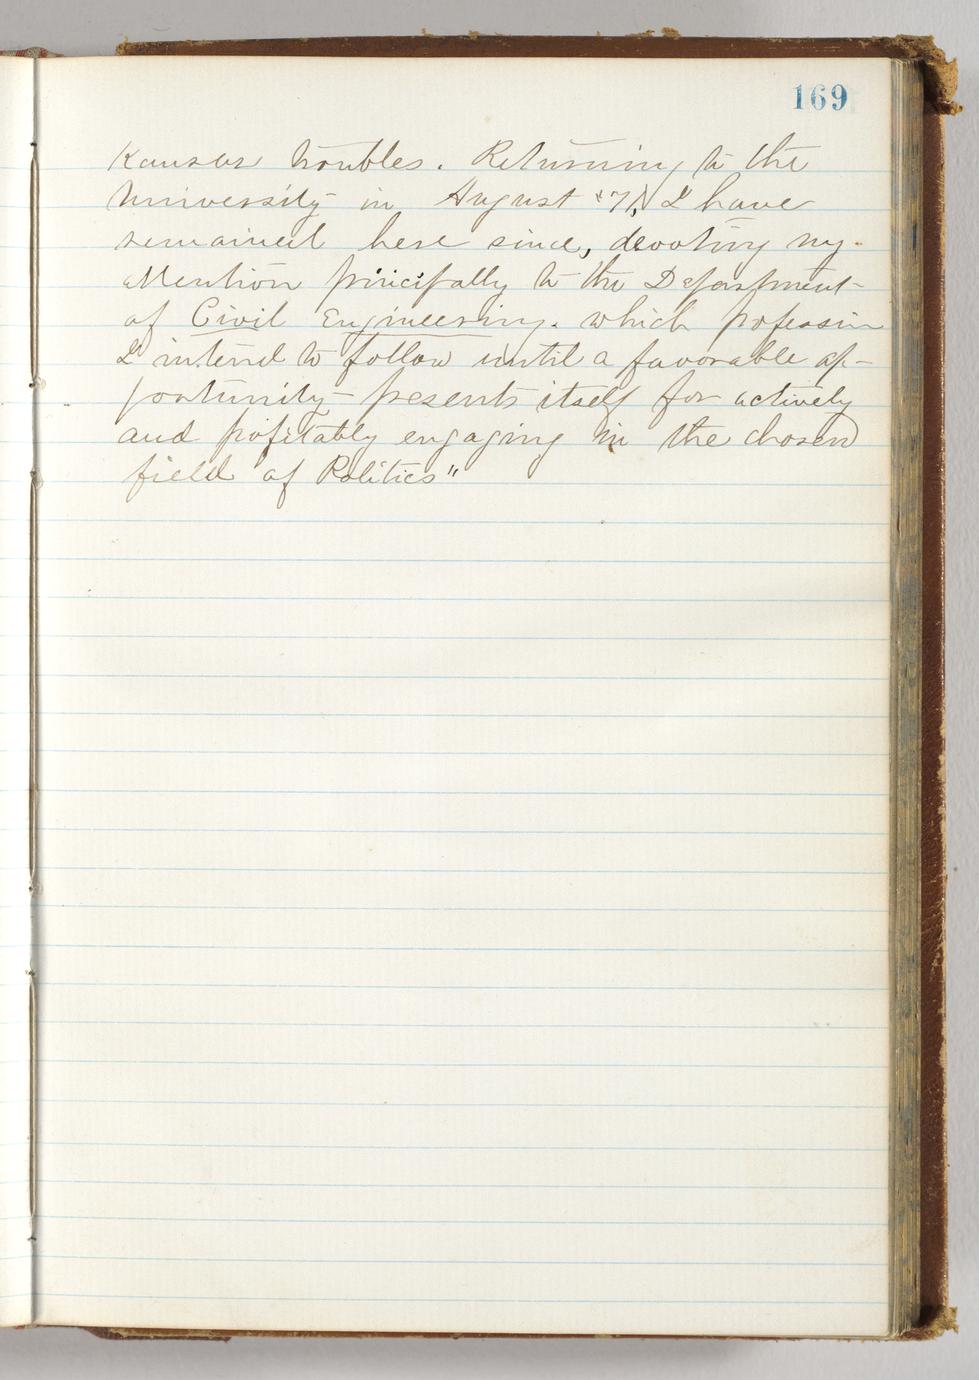 169
Kansas troubles. Returning to the
University in August '71, I have
remained here since, devoting my
attention principally to the Department
of Civil Engineering. which profession
I intend to follow until a favorable op-
portunity presents itself for actively
and profitably engaging in the chosen
field of Politics"